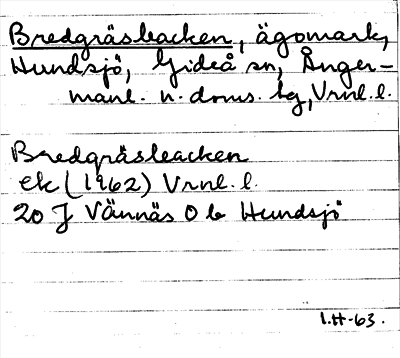 Bredgräsbacken, ägomark,
Hundsjö, Gideå sn, Ånger-
manl. n. doms. tg, Vrnl. l.
Bredgräsbacken
ek (1962) Vrnl. l.
20 J Vännäs O b Hundsjö
I.H-63.